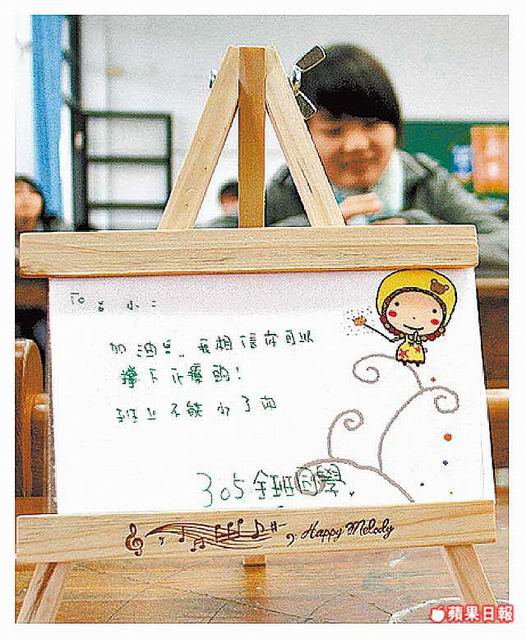 To 呂小二
加油呂, 我相信你可以
撐下去療的!
班上不能少了你
305全班同學.
Happy Melody
蘋果日報